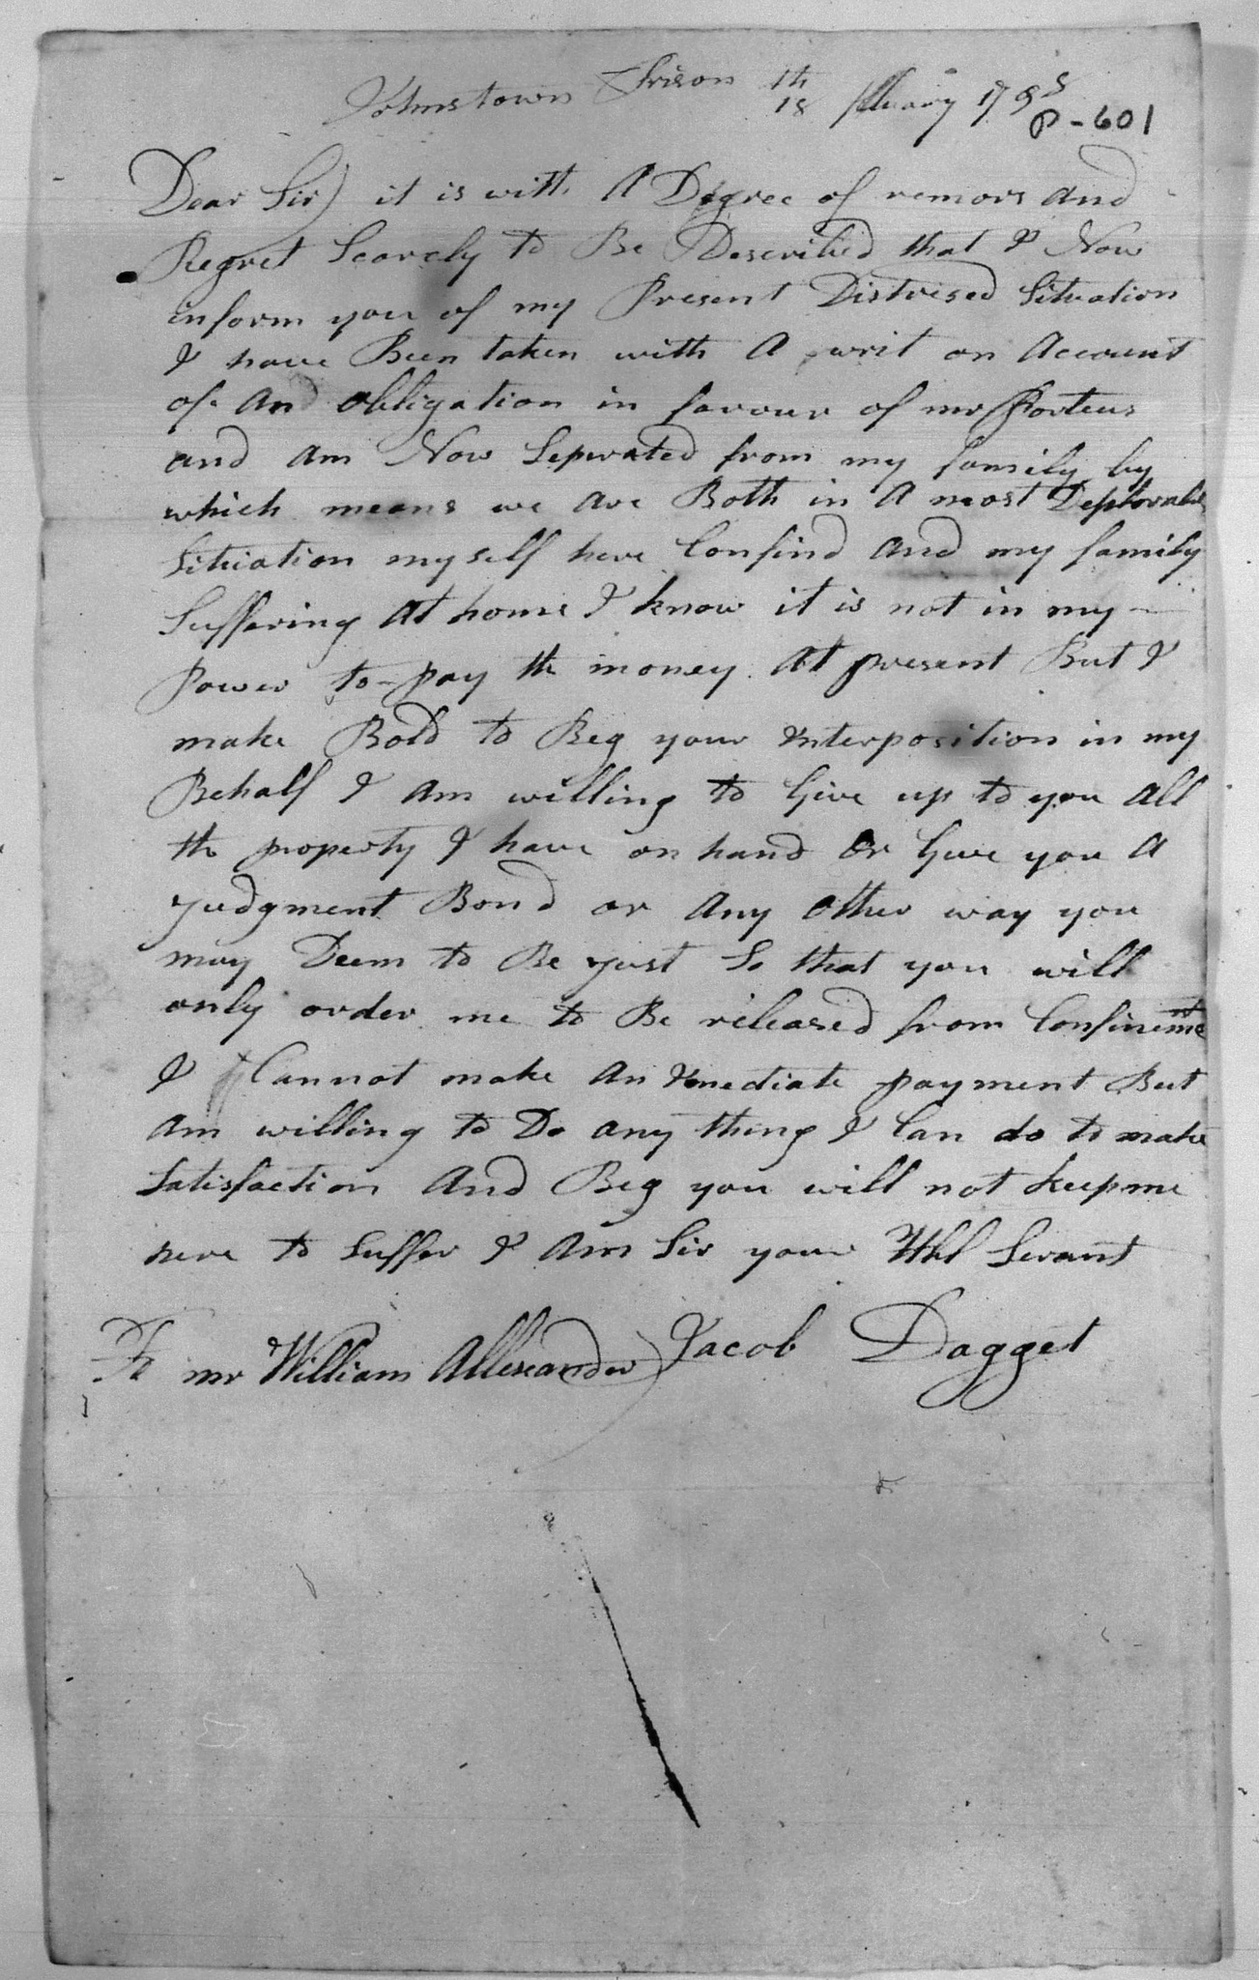 Johnstown Prison 18th 1795
P-601
Dear Sir) it is with A Degree of remors and
Regret Scarcly to Be Described that I Now
inform you of my Present Distresed Situation
I have Been taken with A writ on Account
of And obligation in favour of mr Porteus
and am Now Seperated from my family by
which means we are Both in A most Deplorable
Situation myself here Confind and my family
Suffering At home I know it is not in my
Power to pay the money At present But I
make Bold to Beg your Interposition in my
Behalf I am willing to Give up to you All
the property I have on hand Or Give you A
Judgment Bond or Any Other way you
may Deem to Be Just So that you will
only order me to Be released from Confinement
I Cannot make An Imediate payment But
Am willing to Do any thing I Can do to make
Satisfaction And Beg you will not keep me
here to Suffer I Am Sir your Hbl Servant
Jacob Dagget
To mr William Allexander)